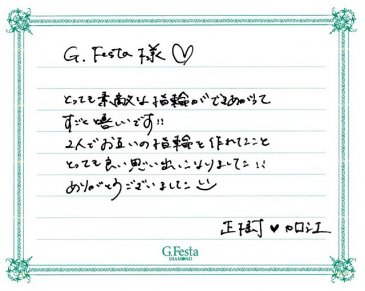 G.Festa 様♡
とっても素敵な指輪ができあがって
すごく嬉しいです!!
2人でお互いの指輪を作れたこと
とっても良い思い出になりました!!
ありがとうございました
正樹♥加江
G.Festa
DIAMOND